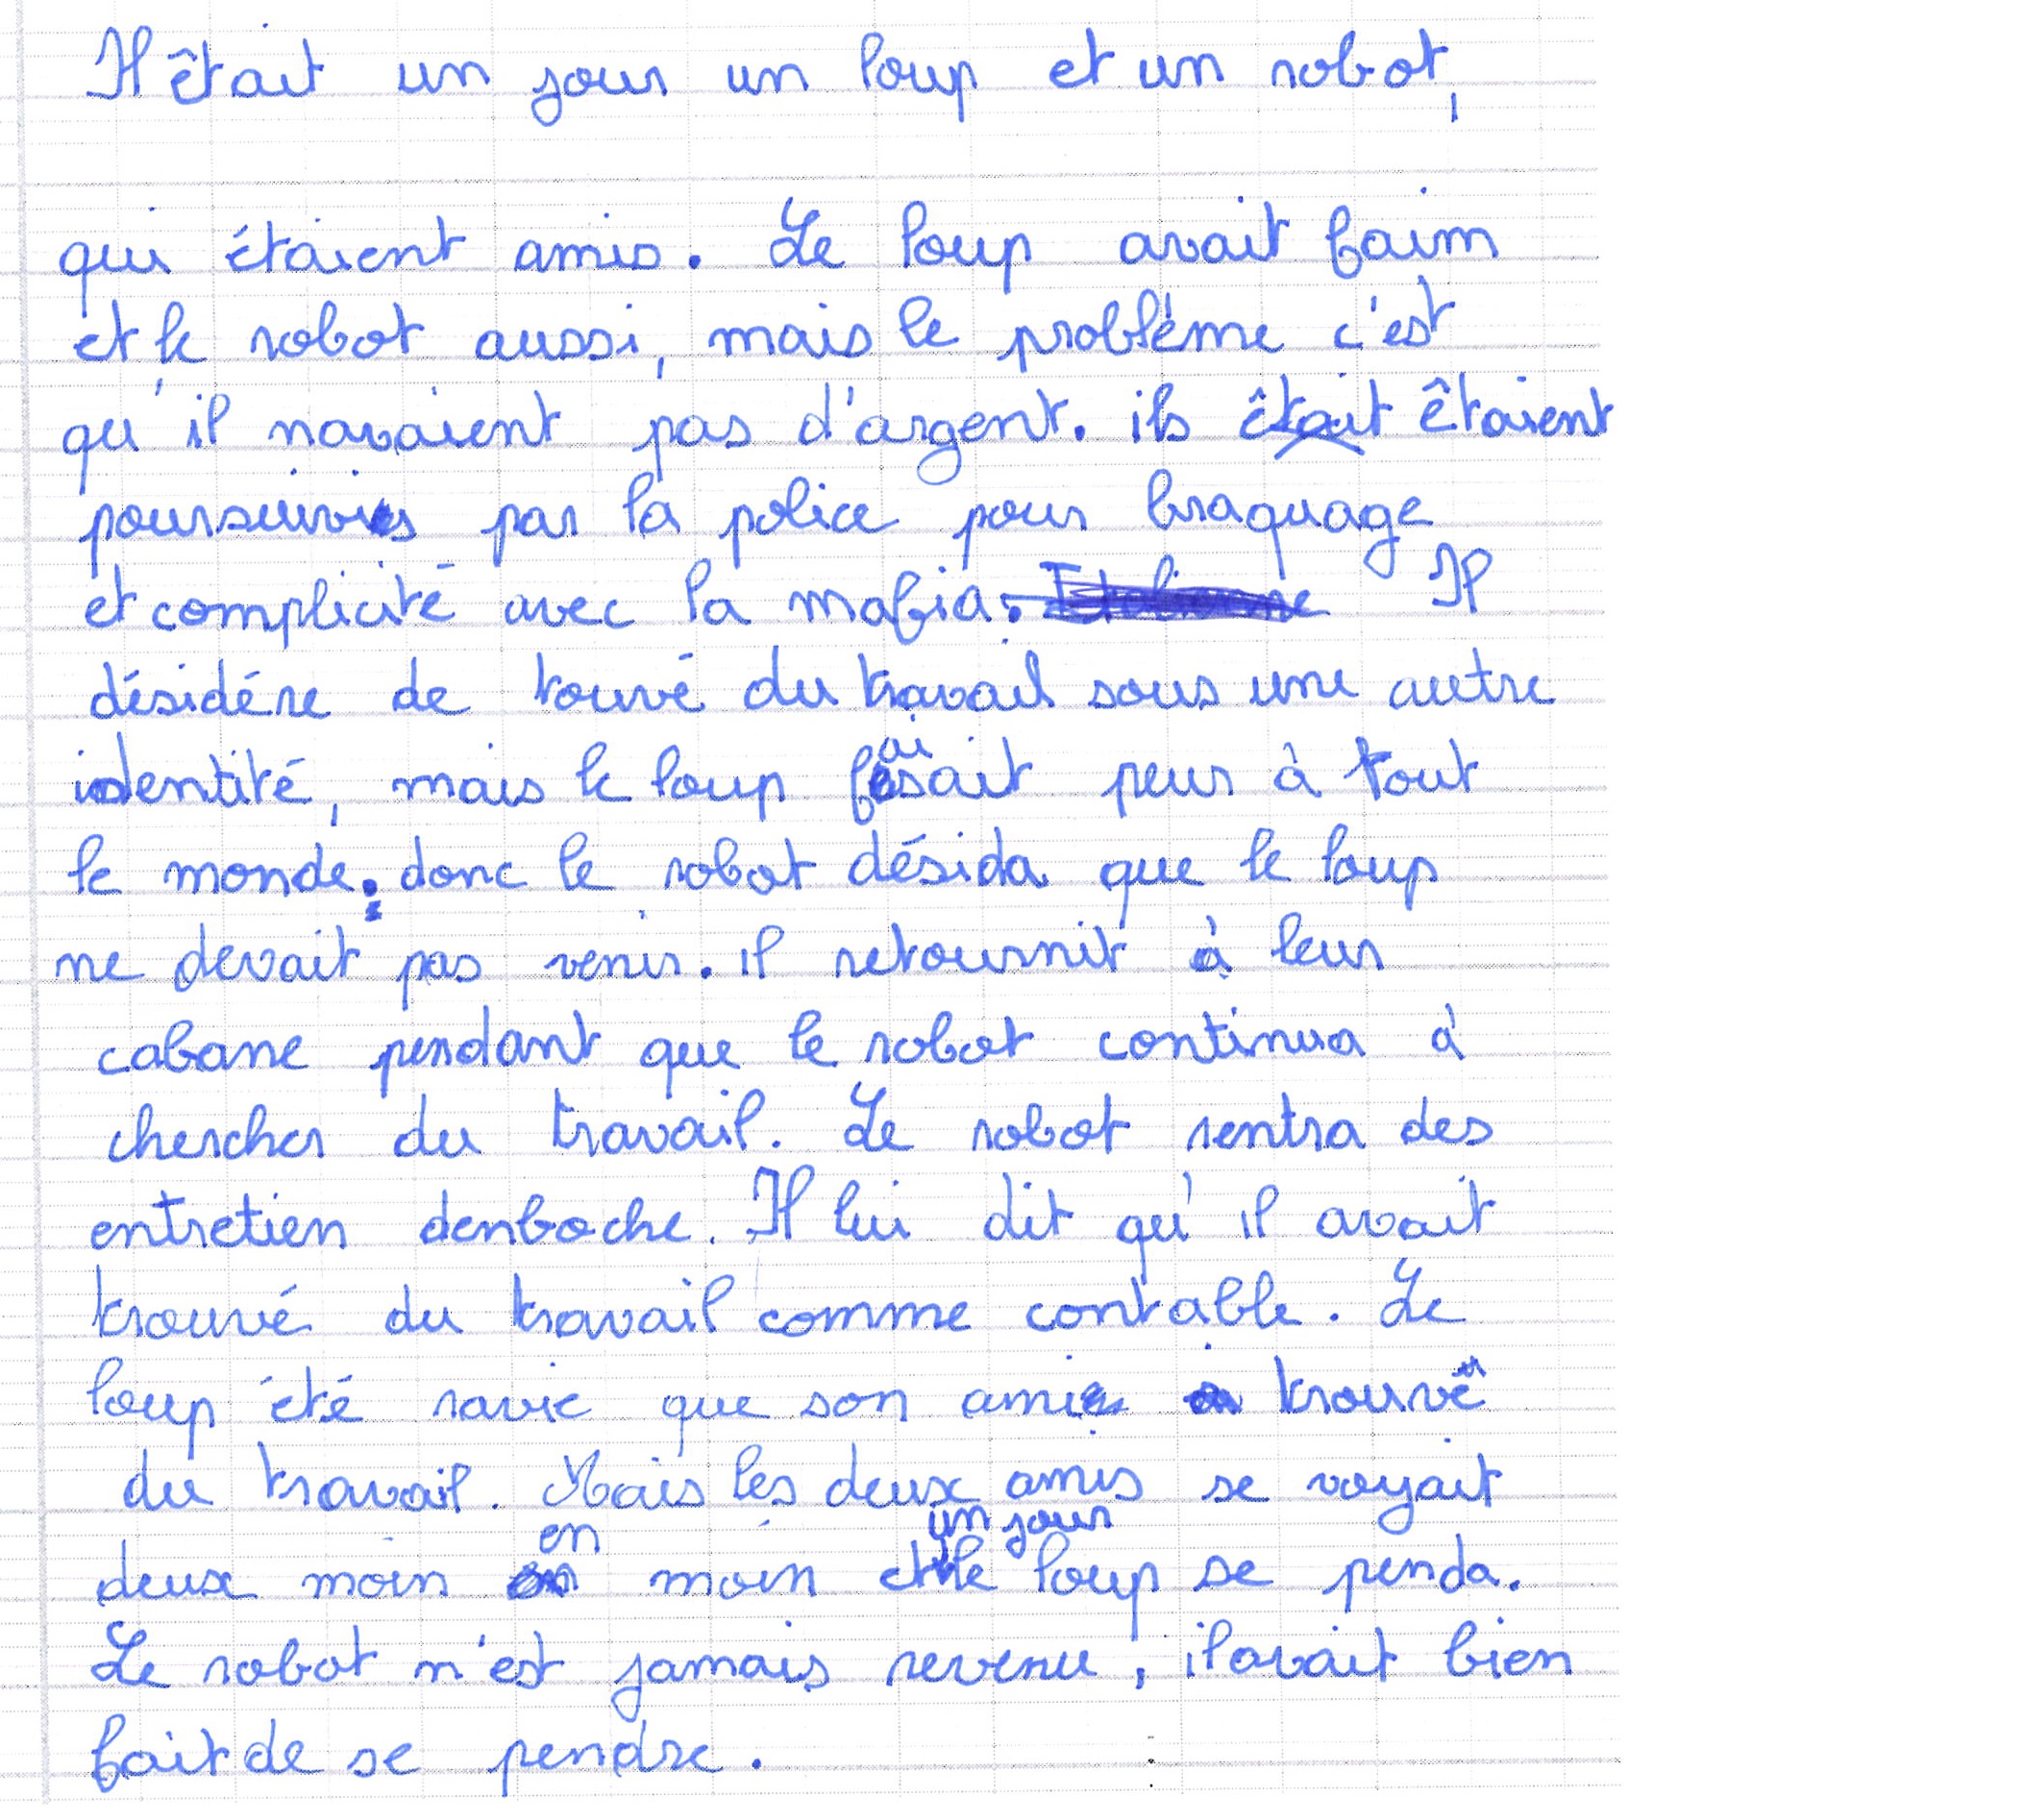 Il êtait un jour un loup et un robot,
qui étaient amis. Le loup avait faim
et le robot aussi, mais le problème c'est
qu'il navaient pas d'argent. ils êtait êtaient
poursuivis par la police pour braquage
et complicité avec la mafia. Il
désidére de touvé du travail sous une autre
identité, mais le loup faisait peur à tout
le monde. donc le robot désida que le loup
ne devait pas venir. il retournit à leur
cabane pendant que le robot continua à
chercher du travail. Le robot rentra des
entretien denboche. Il lui dit qu'il avait
trouvé du travail comme contable. Le
loup été ravie que son ami trouvê
du travail. Mais les deux amis se voyait
deux moin en moin et un jour le loup se penda.
Le robot n'est jamais revenu, il avait bien
fait de se pendre.